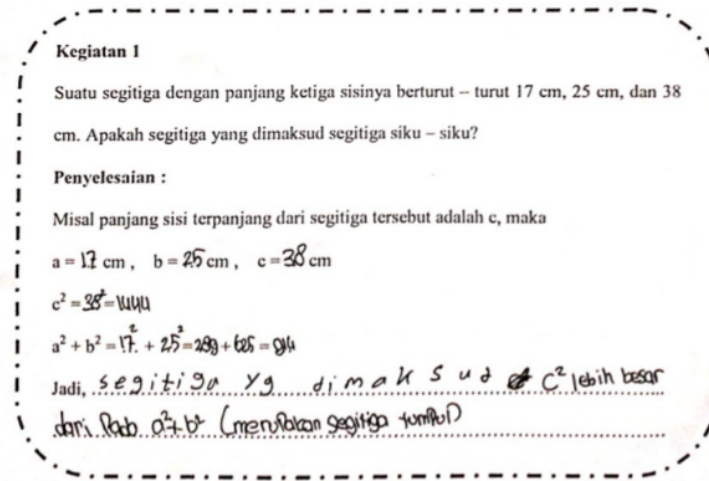 Kegiatan 1
Suatu segitiga dengan panjang ketiga sisinya berturut – turut 17 cm, 25 cm, dan 38
cm. Apakah segitiga yang dimaksud segitiga siku – siku?
Penyelesaian :
Misal panjang sisi terpanjang dari segitiga tersebut adalah c, maka
a = 17 cm , b = 25 cm , c = 38 cm
c² = 38² = 1444
a² + b² = 17² + 25² = 289 + 625 = 914
Jadi, segitiga yg dimaksud c² lebih besar
dari Pada a² + b² (merupakan segitiga tumpul)